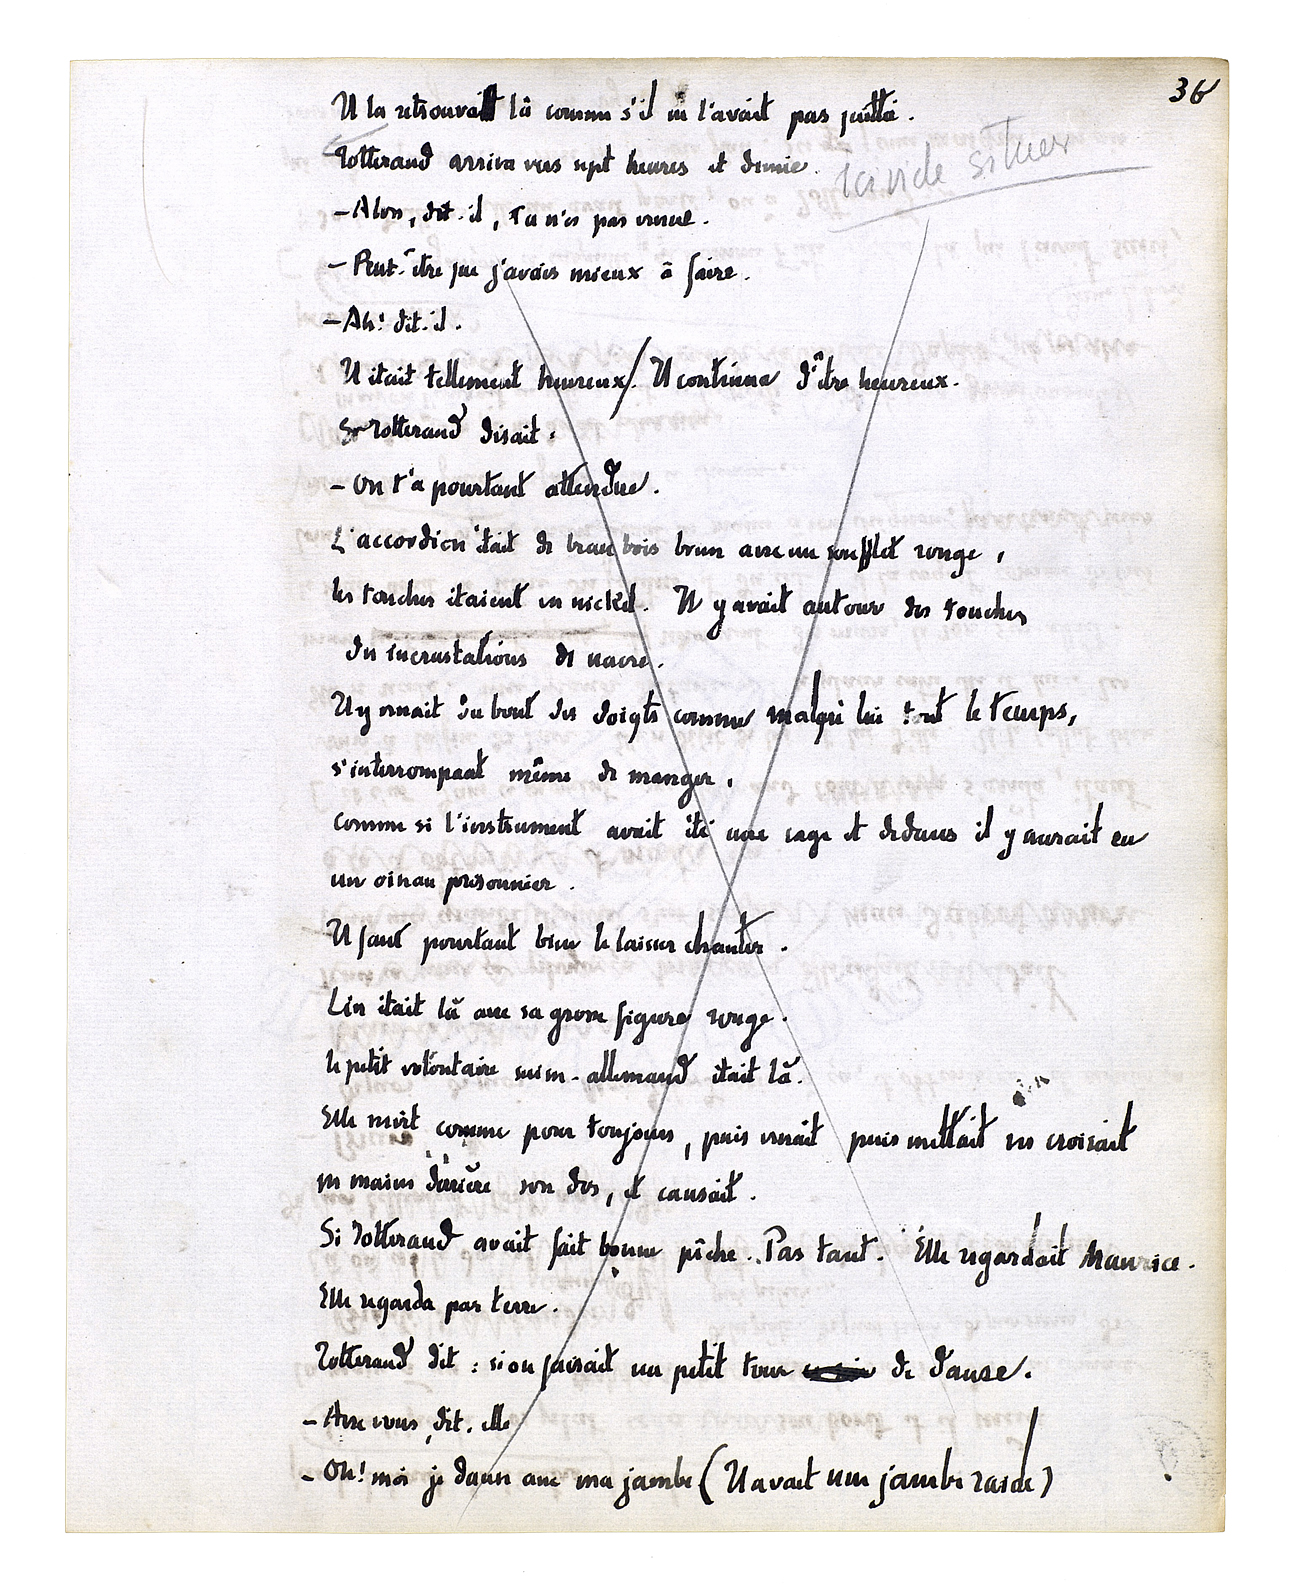 36
Il la retrouvait là comme s'il ne l'avait pas quittée.
Rotterand arriva vers sept heures et demie.
situer
– Alors, dit-il, tu n'es pas venue.
– Peut-être que j'avais mieux à faire.
– Ah! dit-il.
Il était tellement heureux / Il continua d'être heureux.
Rotterand disait :
– On t'a pourtant attendue.
L'accordion était de beau bois brun avec un soufflet rouge,
les touches étaient en nickel. Il y avait autour des touches
des incrustations de nacre.
Il y venait du bout des doigts comme malgré lui tout le temps,
s'interrompant même de manger,
comme si l'instrument avait été une cage et dedans il y aurait eu
un oiseau prisonnier.
Il faut pourtant bien le laisser chanter.
était là avec sa grosse figure rouge.
le petit volontaire suisse-allemand était là.
Elle comme pour toujours, puis venait puis mettait en croisait
ses mains derrière son dos, et causait.
Si Rotterand avait fait bonne pêche. Pas tant. Elle regardait Maurice.
Elle regarda par terre.
Rotterand dit : si on faisait un petit tour de danse.
– Avec vous, dit-elle
– Oh! moi je danse avec ma jambe (Il avait une jambe raide)